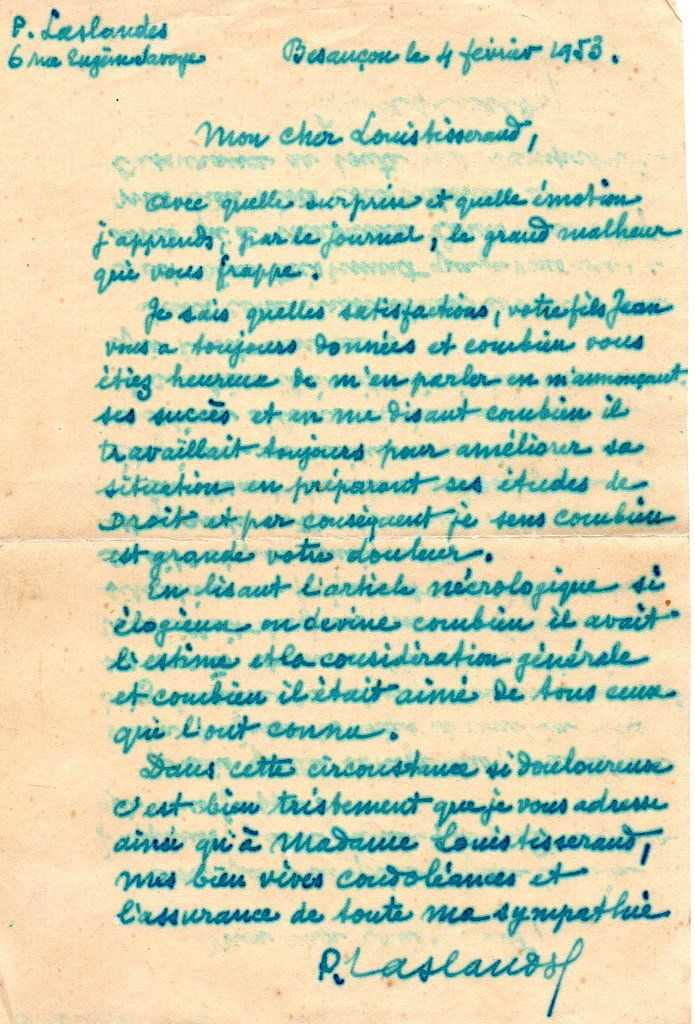 P. Laslandes
6 rue Eugène Savoye
Besançon le 4 février 1953.
Mon cher Louistisserand,
Avec quelle surprise et quelle émotion
j'apprends, par le journal, le grand malheur
qui vous frappe.
Je sais quelles satisfactions, votre fils Jean
vous a toujours données et combien vous
étiez heureux de m'en parler en m'annonçant
ses succès et en me disant combien il
travaillait toujours pour améliorer sa
situation en préparant ses études de
Droit et par conséquent je sens combien
est grande votre douleur.
En lisant l'article nécrologique si
élogieux on devine combien il avait
l'estime et la considération générale
et combien il était aimé de tous ceux
qui l'ont connu.
Dans cette circonstance si douloureuse
c'est bien tristement que je vous adresse
ainsi qu'à Madame Louistisserand,
mes bien vives condoléances et
l'assurance de toute ma sympathie
P. Laslandes